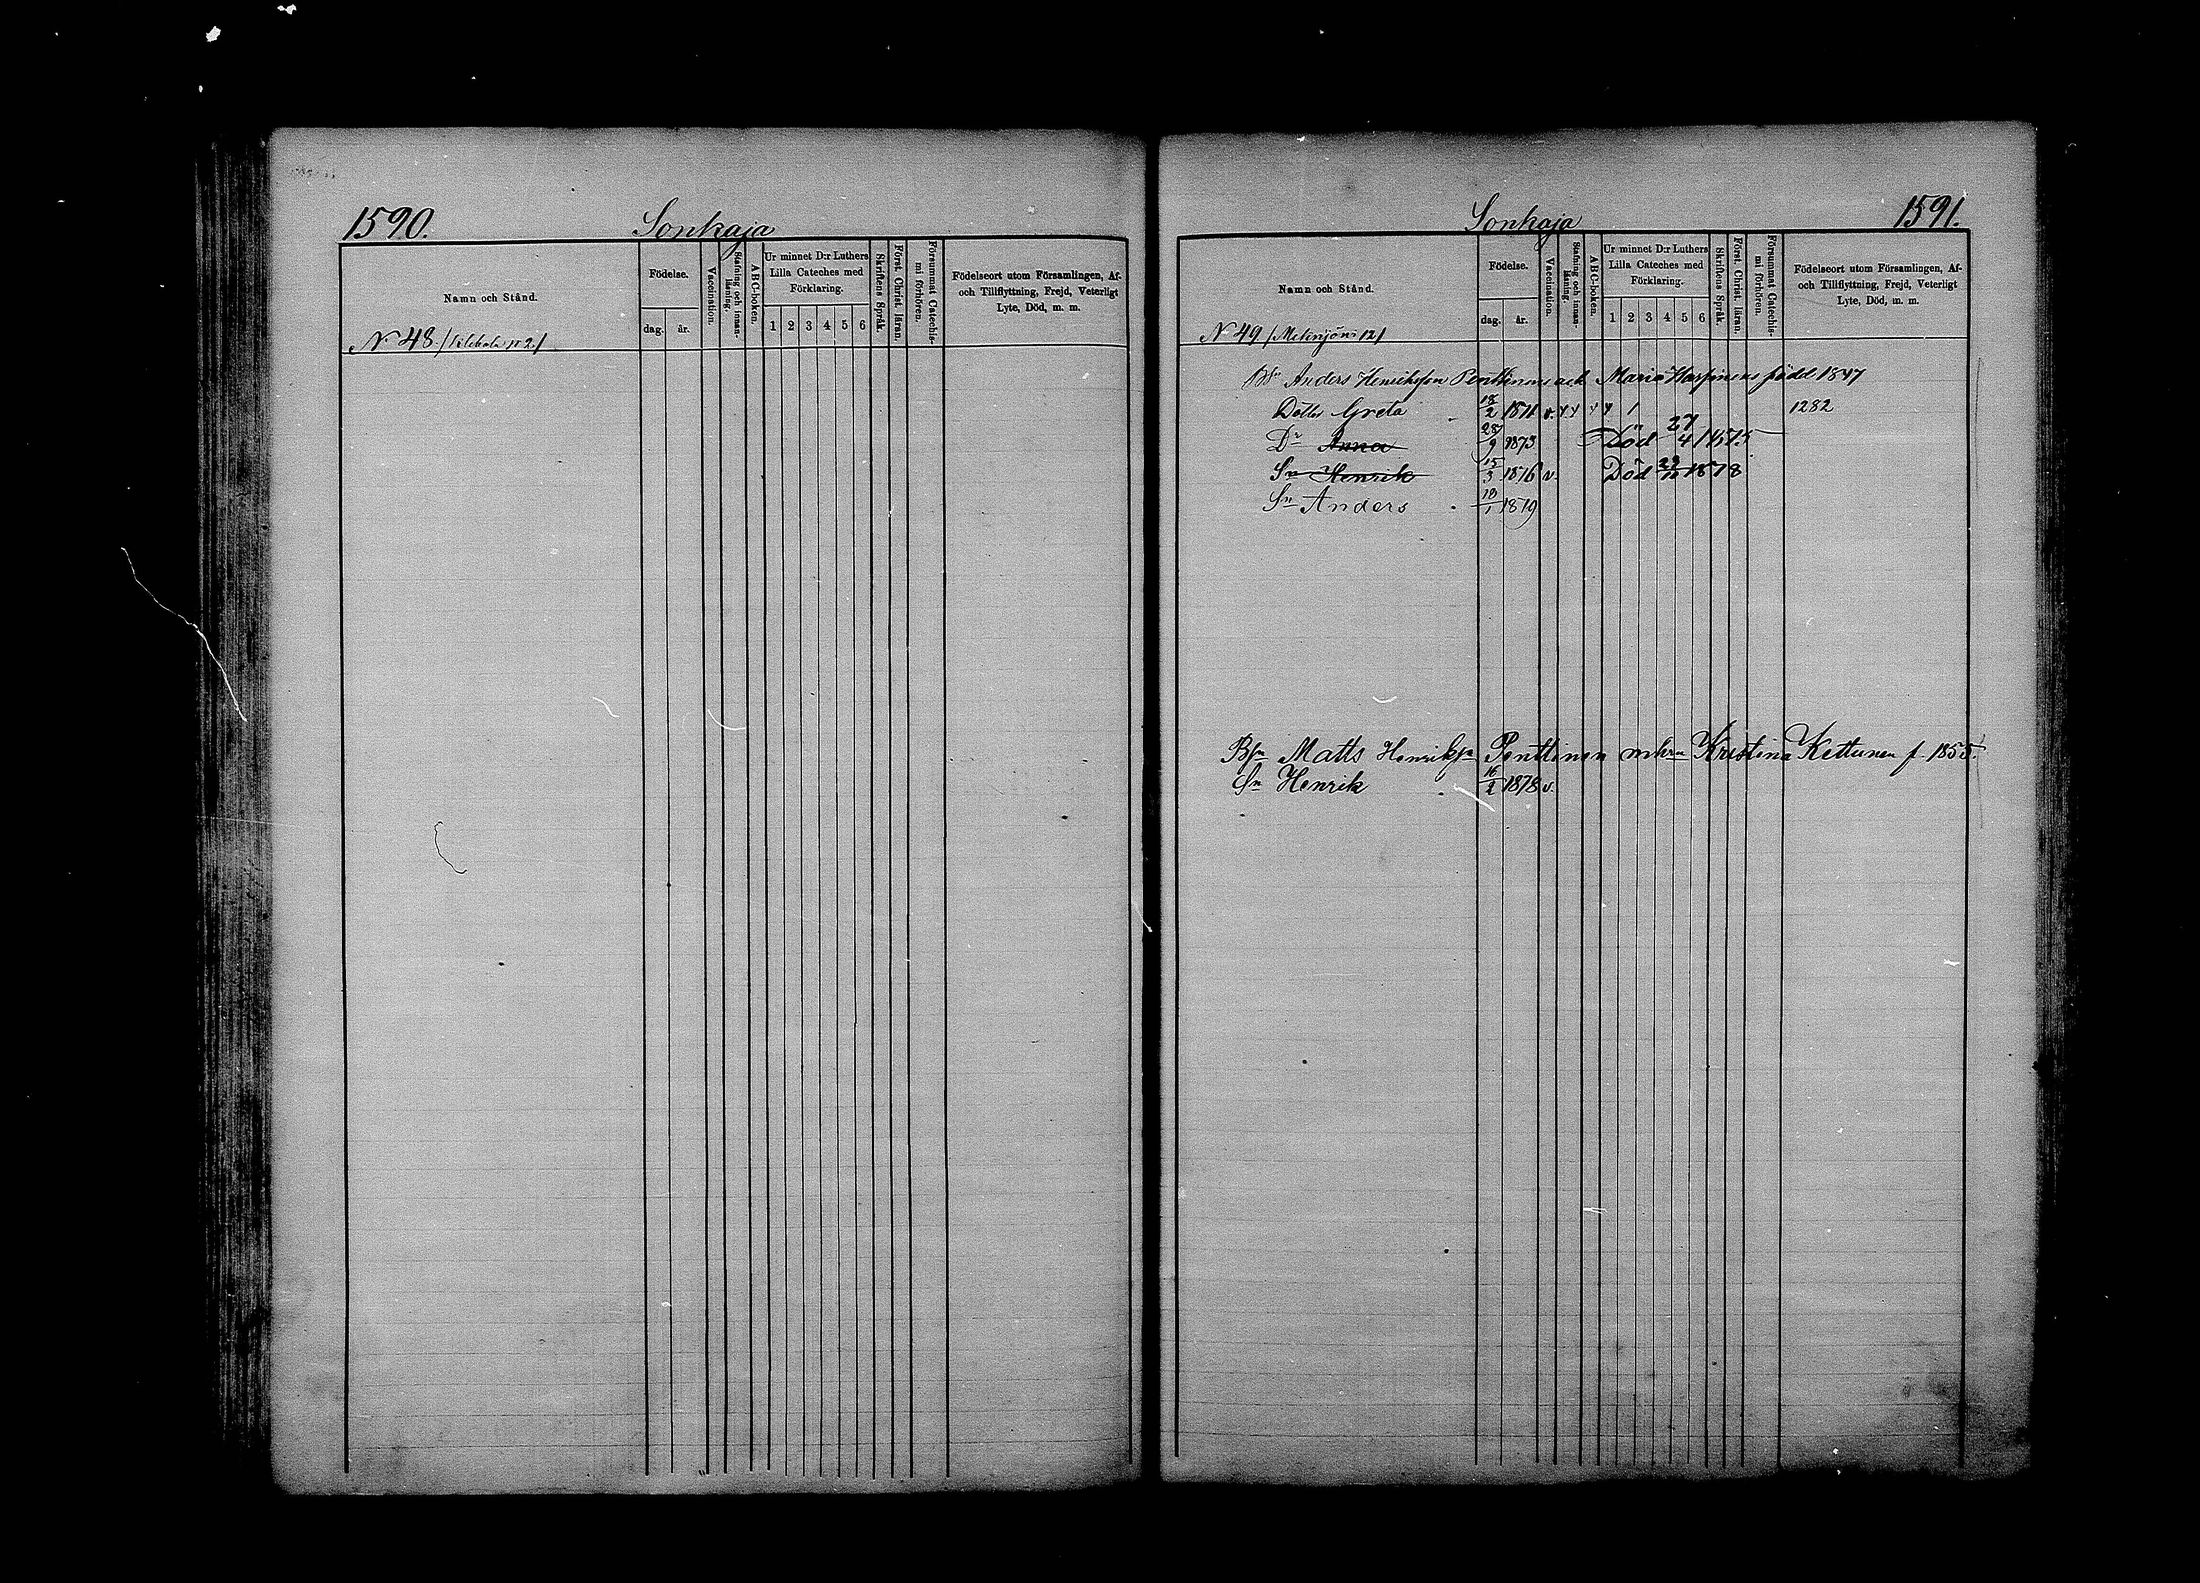 1590.
Sonkaja
Namn och Stånd.
Födelse.
dag.
år.
Vaccination.
Stafning och innan-läsning.
ABC-boken.
Ur minnet D:r Luthers
Lilla Cateches med
Förklaring.
1 2 3 4 5 6
Skriftens Språk.
Först. Christ. läran.
Försummat Catechis-mi förhören.
Födelseort utom Församlingen, Af-
och Tillflyttning, Frejd, Veterligt
Lyte, Död, m. m.
N 48
1591.
Sonkaja
Namn och Stånd.
Födelse.
dag.
år.
Vaccination.
Stafning och innan-läsning.
ABC-boken.
Ur minnet D:r Luthers
Lilla Cateches med
Förklaring.
1 2 3 4 5 6
Skriftens Språk.
Först. Christ. läran.
Försummat Catechis-mi förhören.
Födelseort utom Församlingen, Af-
och Tillflyttning, Frejd, Veterligt
Lyte, Död, m. m.
N 49
Anders Henriksson Penttinens och Maria född 1847
Dotter Greta 18/2 1871 v. 1 1282
Dr Anna 28/9 1873 Död 27/4 1875
Sn Henrik 15/3 1876 v Död 1878
Sn Anders 1879
Bsn Matts Henriksn Penttinen Kristina Kettunen f. 1855
Sn Henrik 16/2 1878 v.